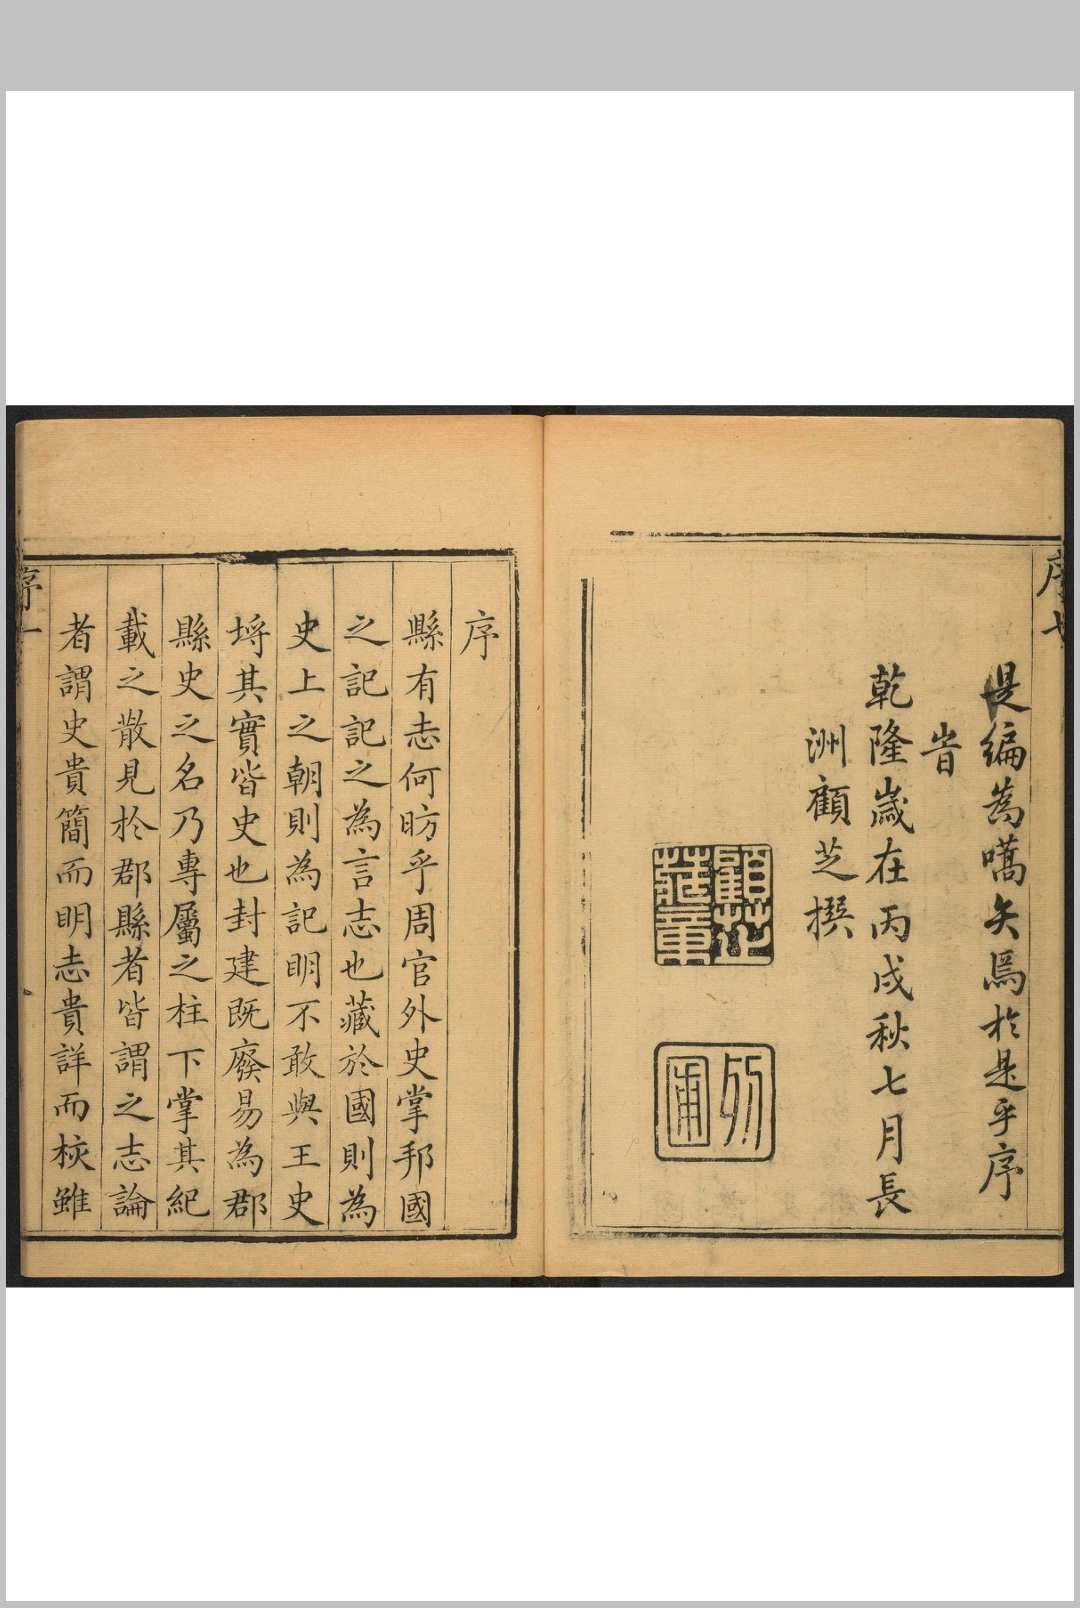 序七
是編爲嚆矢焉於是乎序
旹
乾隆嵗在丙戍秋七月長
洲顧芝撰
顧芝
序
縣有志何昉乎周官外史掌邦國
之記記之為言志也藏於國則為
史上之朝則為記明不敢與王史
埒其實皆史也封建既廢易為郡
縣史之名乃專屬之柱下掌其紀
載之散見於郡縣者皆謂之志論
者謂史貴簡而明志貴詳而核雖
序一